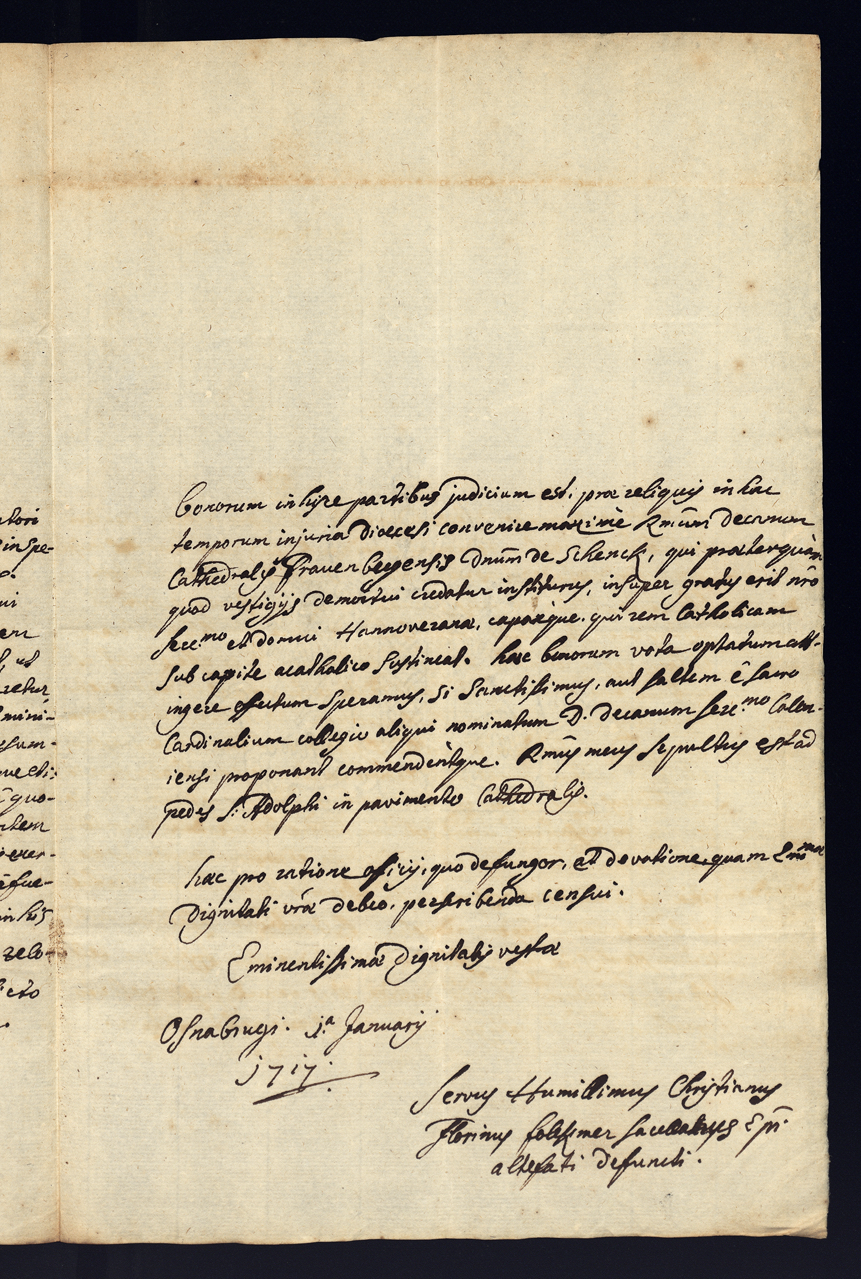 bonorum in hisce partibus judicium est, præ reliquis in hac
temporum injuria dioecesi convenire maximè Rmũm decanum
Cathedralis Frauenbergensis Dnũm de Schenck, qui præterquàm
quod vestigijs demortui credatur institurus, insuper gratus erit nrõ
Sere:mo et domui Hannoveranæ, capaxque. qui rem Catholicam
sub capite acatholico sustineat. hæc bonorum vota optatum att-
ingere effectum speramus, si Sanctissimus, aut saltem ẽ sacro
Cardinalium collegio aliqui nominatum D. decanum Sere:mo Colon-
iensi proponant commendèntque. Rmũs meus sepultus est ad
pedes S: Adolphi in pavimento Cathedralis.
hæc pro ratione officij, quo defungor, et devotione, quam Emĩnmæ
Dignitati vrãe debeo, perscribenda censui.
Eminentissimæ Dignitatis vestræ
Osnabrugi. 1.a Januarij
1717.
Servus Humillimus Christianus
Florinus sacellanus Epĩ
altefati defuncti.
atori
in spe-
ui
em
ut
retur
mini-
sum-
que eti:
quo-
item
exer-
in his
zelo-